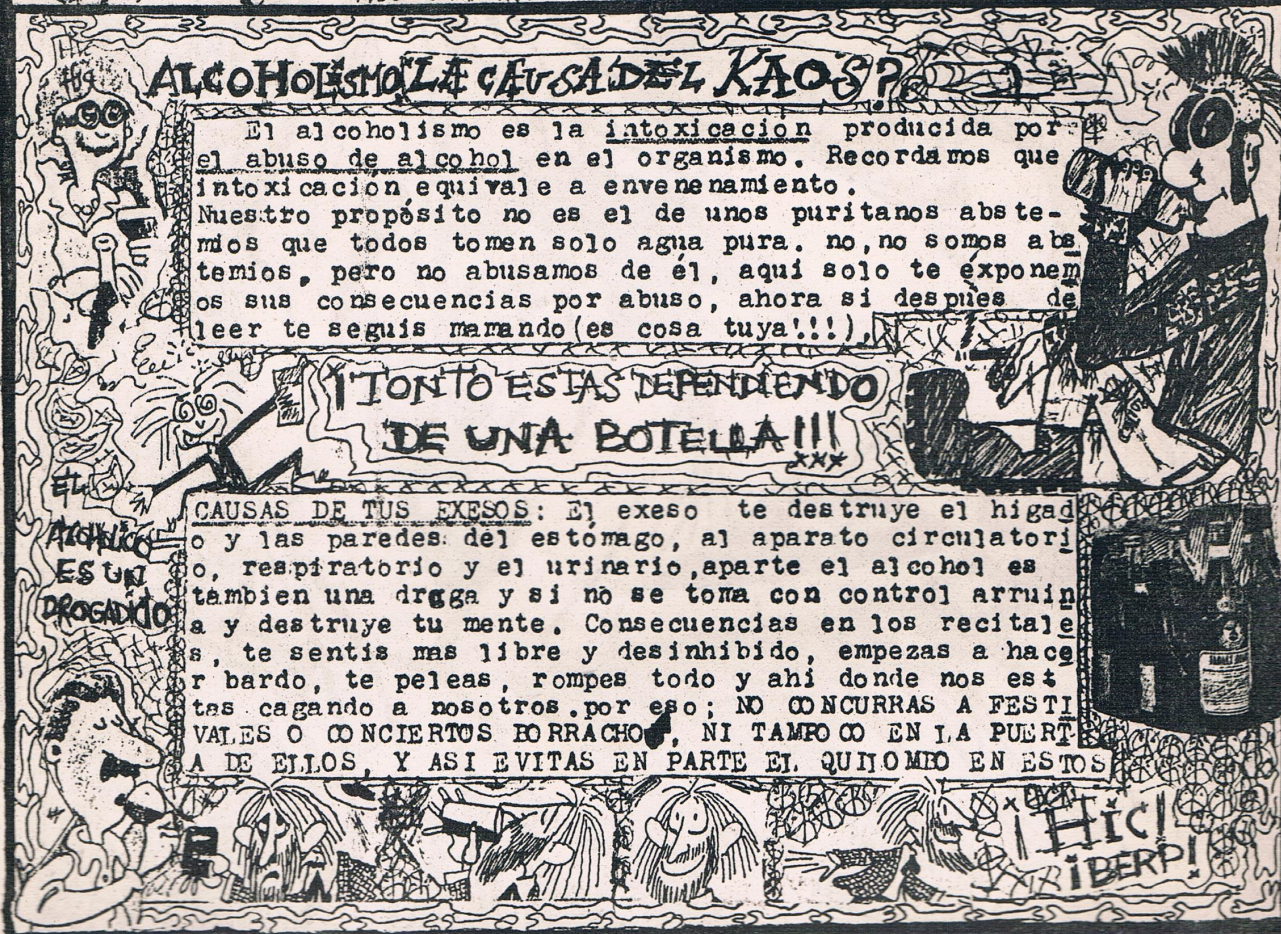 ALCOHOLISMO ¿LA CAUSA DEL KAOS?
El alcoholismo es la intoxicación producida por
el abuso de alcohol en el organismo. Recordamos que
intoxicación equivale a envenenamiento.
Nuestro propósito no es el de unos puritanos abste-
mios que todos tomen solo agua pura. no,no somos abs
temios, pero no abusamos de él, aqui solo te exponem
os sus consecuencias por abuso, ahora si despues de
leer te seguis mamando(es cosa tuya!!!),
¡TONTO ESTAS DEPENDIENDO
DE UNA BOTELLA!!!
xxx
EL
ALCOHOLICO
ES UN
DROGADICTO
CAUSAS DE TUS EXESOS: El exeso te destruye el higad
o y las paredes del estomago, al aparato circulatori
o, respiratorio y el urinario,aparte el alcohol es
tambien una droga y si no se toma con control arruin
a y destruye tu mente. Consecuencias en los recitale
s, te sentis mas libre y desinhibido, empezas a hace
r bardo, te peleas, rompes todo y ahi donde nos est
tas cagando a nosotros.por eso; NO CONCURRAS A FESTI
VALES O CONCIERTOS BORRACHO, NI TAMPOCO EN LA PUERT-
A DE ELLOS, Y ASI EVITAS EN PARTE EL QUILOMBO EN ESTOS
¡HIC!
¡BERP!